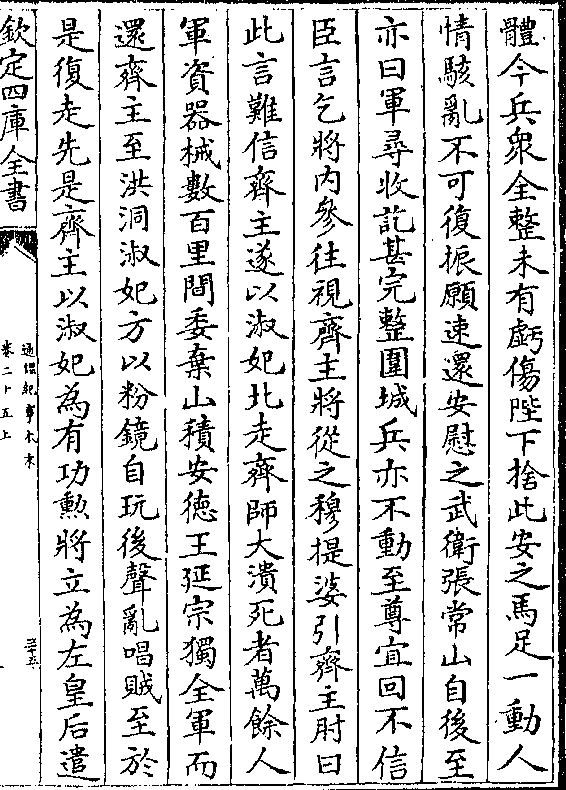 體今兵衆全整未有虧傷陛下捨此安之馬足一動人
情駭亂不可復振願速還安慰之武衛張常山自後至
亦曰軍尋收訖甚完整圍城兵亦不動至尊宜回不信
臣言乞將内參往視齊主將從之穆提婆引齊主肘曰
此言難信齊主遂以淑妃北走齊師大潰死者萬餘人
軍資器械數百里間委棄山積安德王延宗獨全軍而
還齊主至洪洞淑妃方以粉鏡自玩後聲亂唱賊至於
是復走先是齊主以淑妃為有功勲將立為左皇后遣
欽定四庫全書
通鑑紀事本末
卷二十五上
三十五